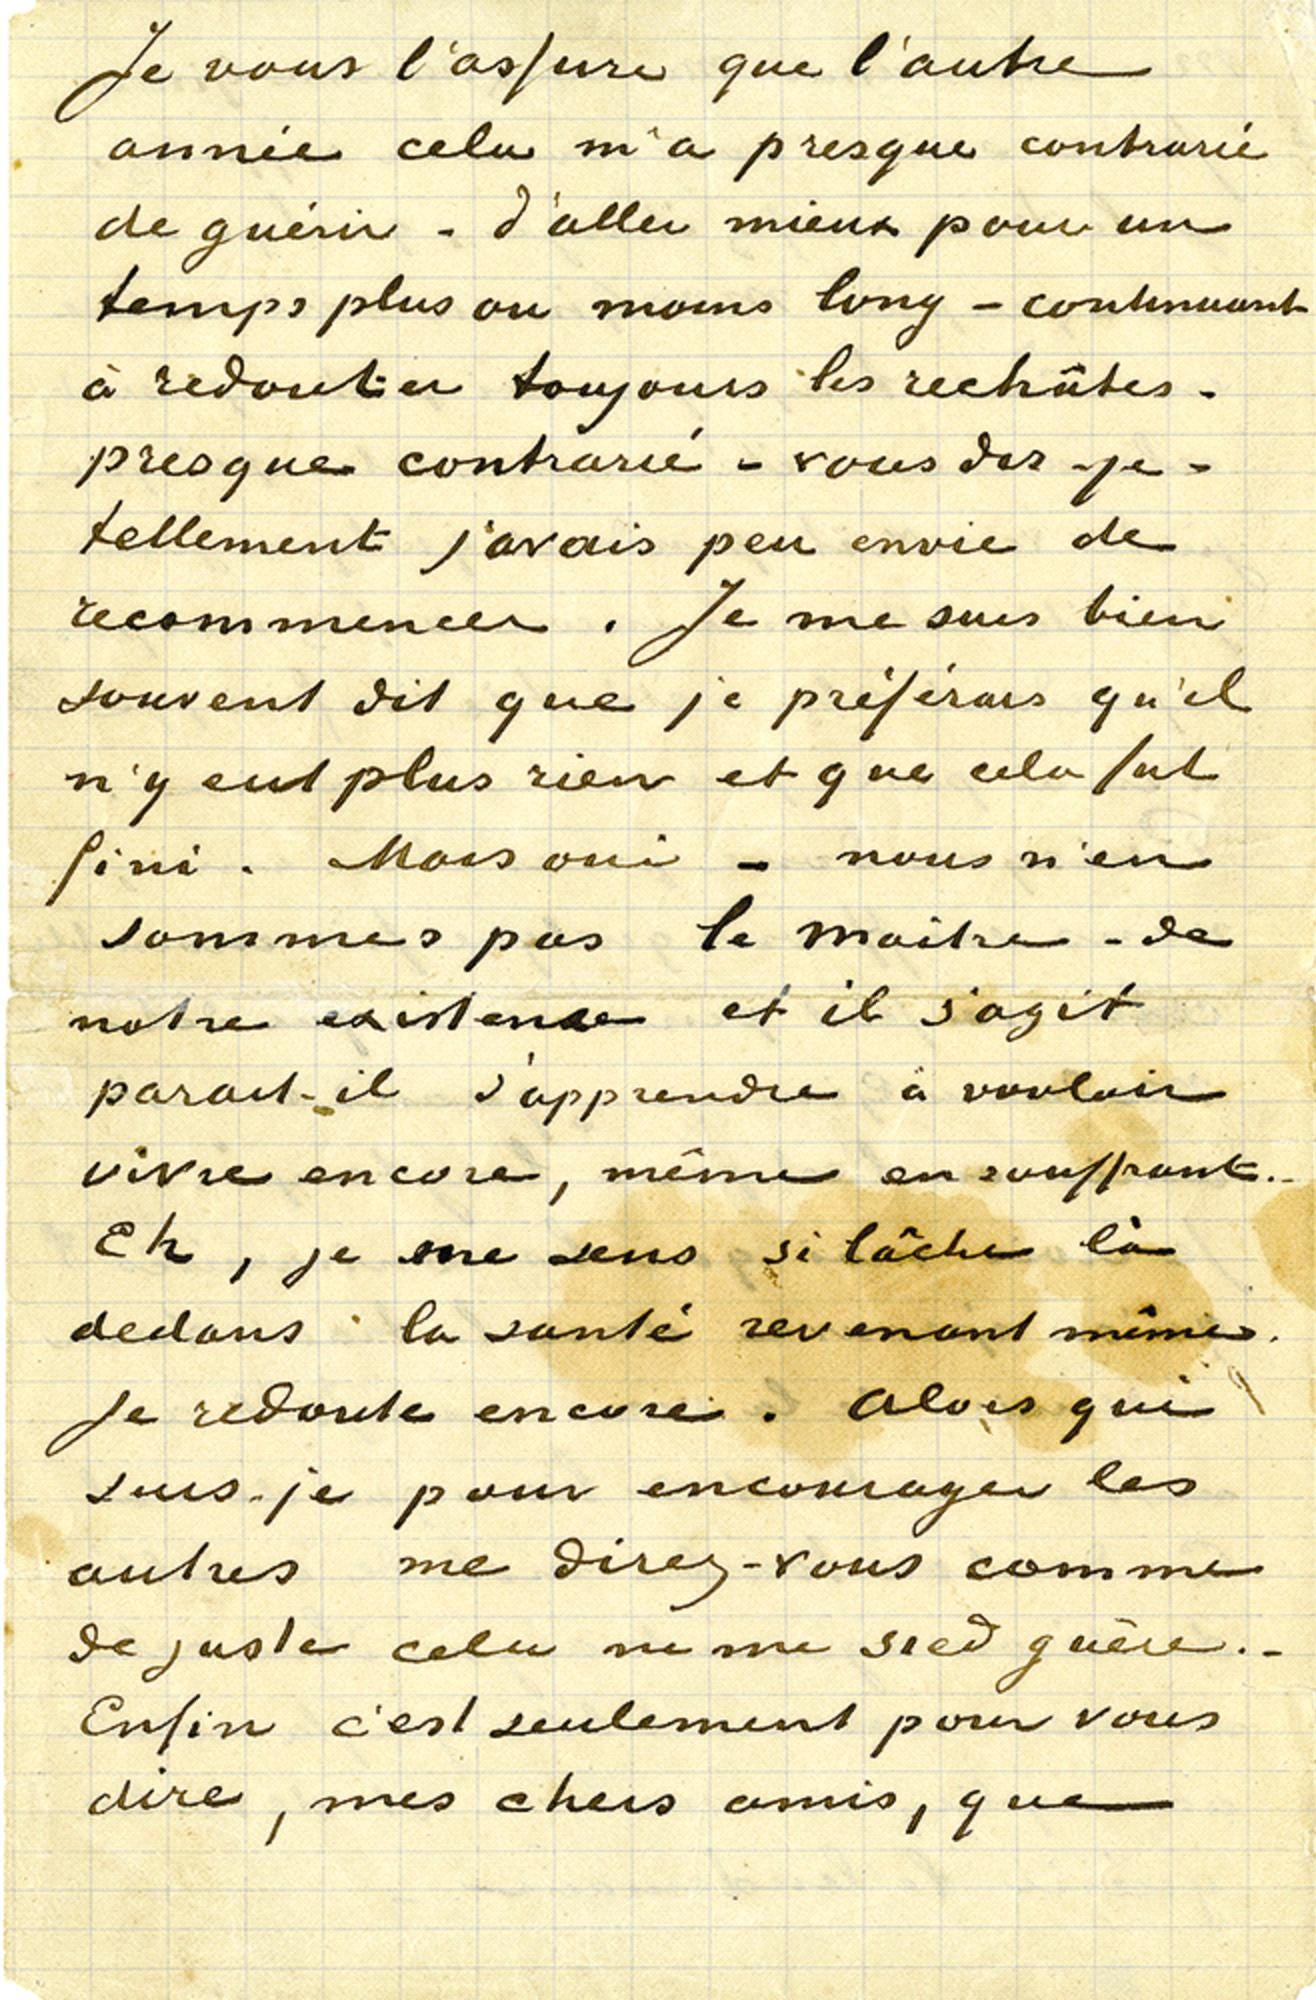 Je vous l'assure que l'autre
année cela m'a presque contrarié
de guérir - d'aller mieux pour un
temps plus ou moins long - continuant
à redouter toujours les rechûtes -
presque contrarié - vous dis-je -
tellement j'avais peu envie de
recommencer . Je me suis bien
souvent dit que je préférais qu'il
n'y eut plus rien et que cela fut
fini . Mais oui - nous n'en
sommes pas le maître - de
notre existence et il s'agit
parait-il d'apprendre à vouloir
vivre encore, même en souffrant.-
Eh , je me sens si lâche là
dedans la santé revenant même.
Je redoute encore . Alors qui
suis-je pour encourager les
autres me direz-vous comme
de juste cela ne me sied guère.-
Enfin c'est seulement pour vous
dire , mes chers amis, que